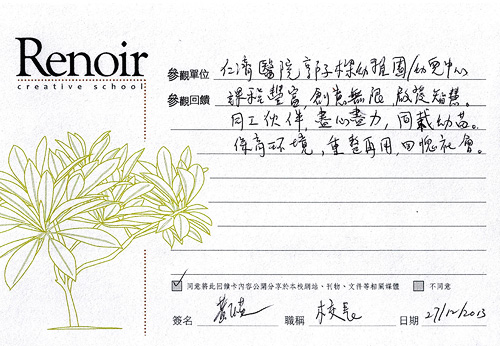 Renoir
creative school
參觀單位 仁濟醫院郭子樑幼稚園/幼兒中心
參觀回饋 課程豐富,創意無限,啟發智慧。
同工伙伴,盡心盡力,同栽幼苗。
保育环境,重整再用,回愧社會。
同意將此回饋卡內容公開分享於本校網站、刊物、文件等相關媒體 不同意
簽名 職稱 校長 日期 27/12/2013